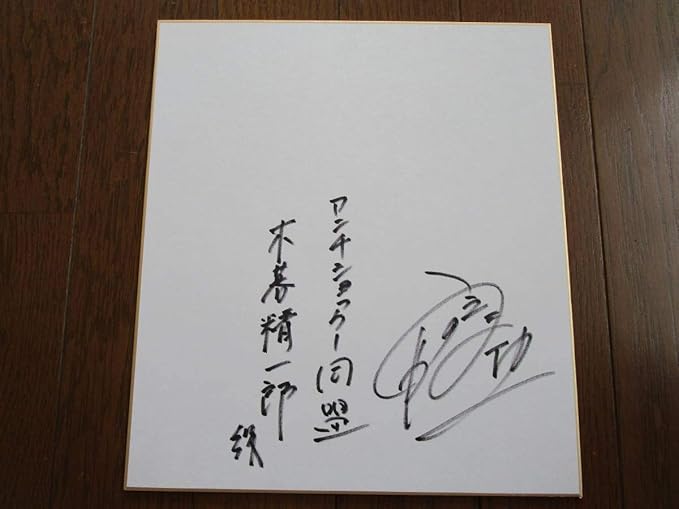 アンチショッカー同盟
木暮精一郎
役